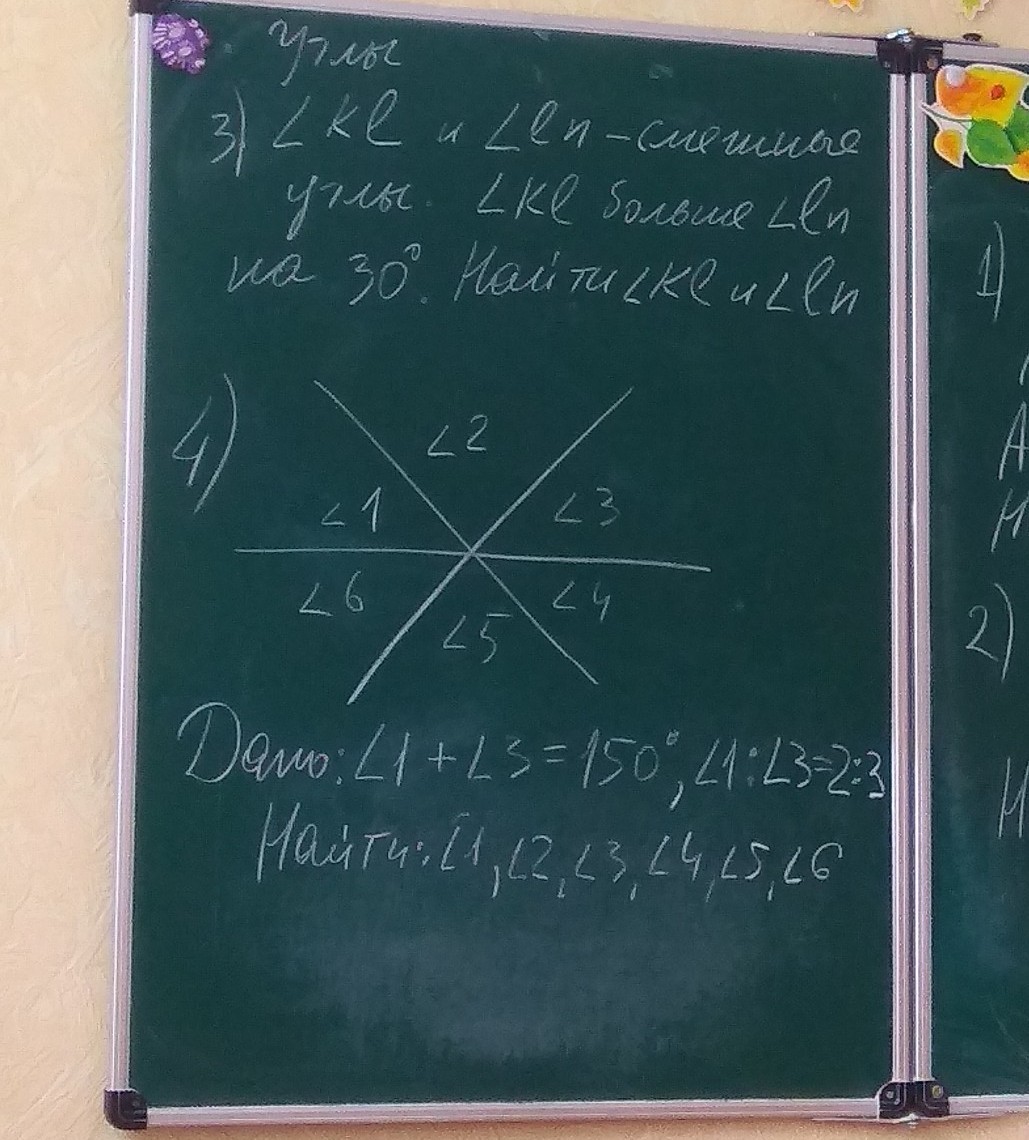 Углы
3) ∠Kl и ∠ln - смежные
углы. ∠Kl больше ∠ln
на 30°. Найти ∠Kl и ∠ln
4)
∠2
∠1 ∠3
∠6 ∠4
∠5
Дано: ∠1 + ∠3 = 150°, ∠1:∠3=2:3
Найти: ∠1, ∠2, ∠3, ∠4, ∠5, ∠6
1)
А
Н
2)
Н